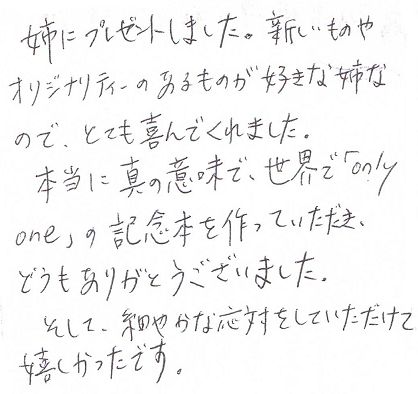 姉にプレゼントしました。新しいものや
オリジナリティーのあるものが好きな姉な
ので、とても喜んでくれました。
本当に真の意味で、世界で「only
one」の記念本を作っていただき、
どうもありがとうございました。
そして、細やかな応対をしていただけて
嬉しかったです。